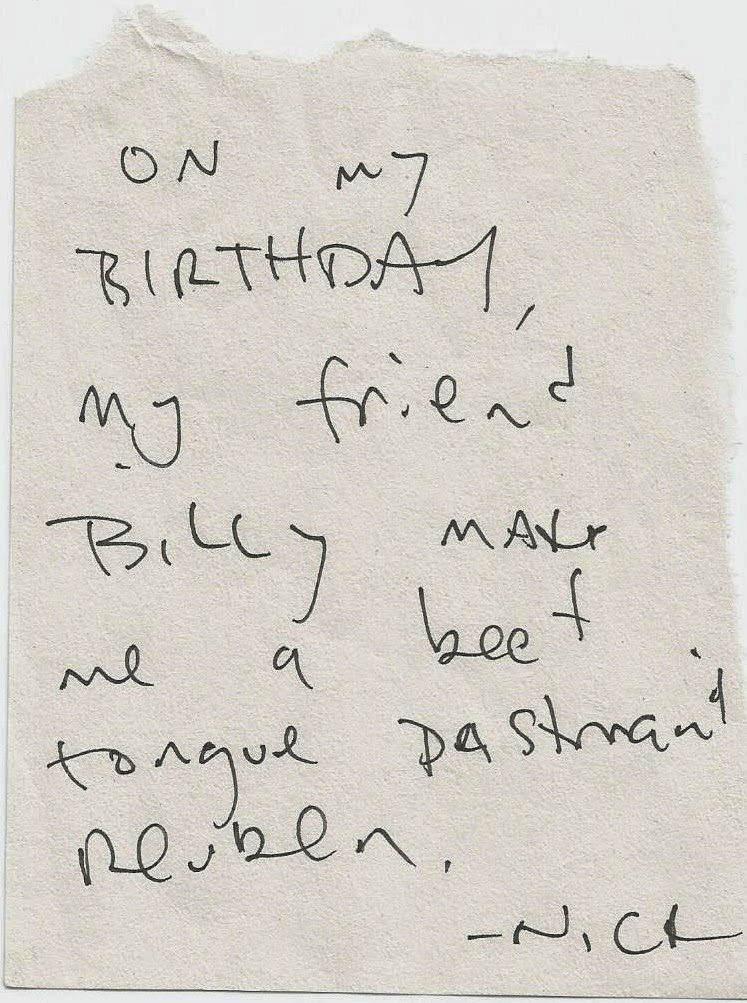 ON MY
BIRTHDAY,
My friend
BiLLy MAKe
me a beef
tongue pastrami
Reuben.
-NiCK